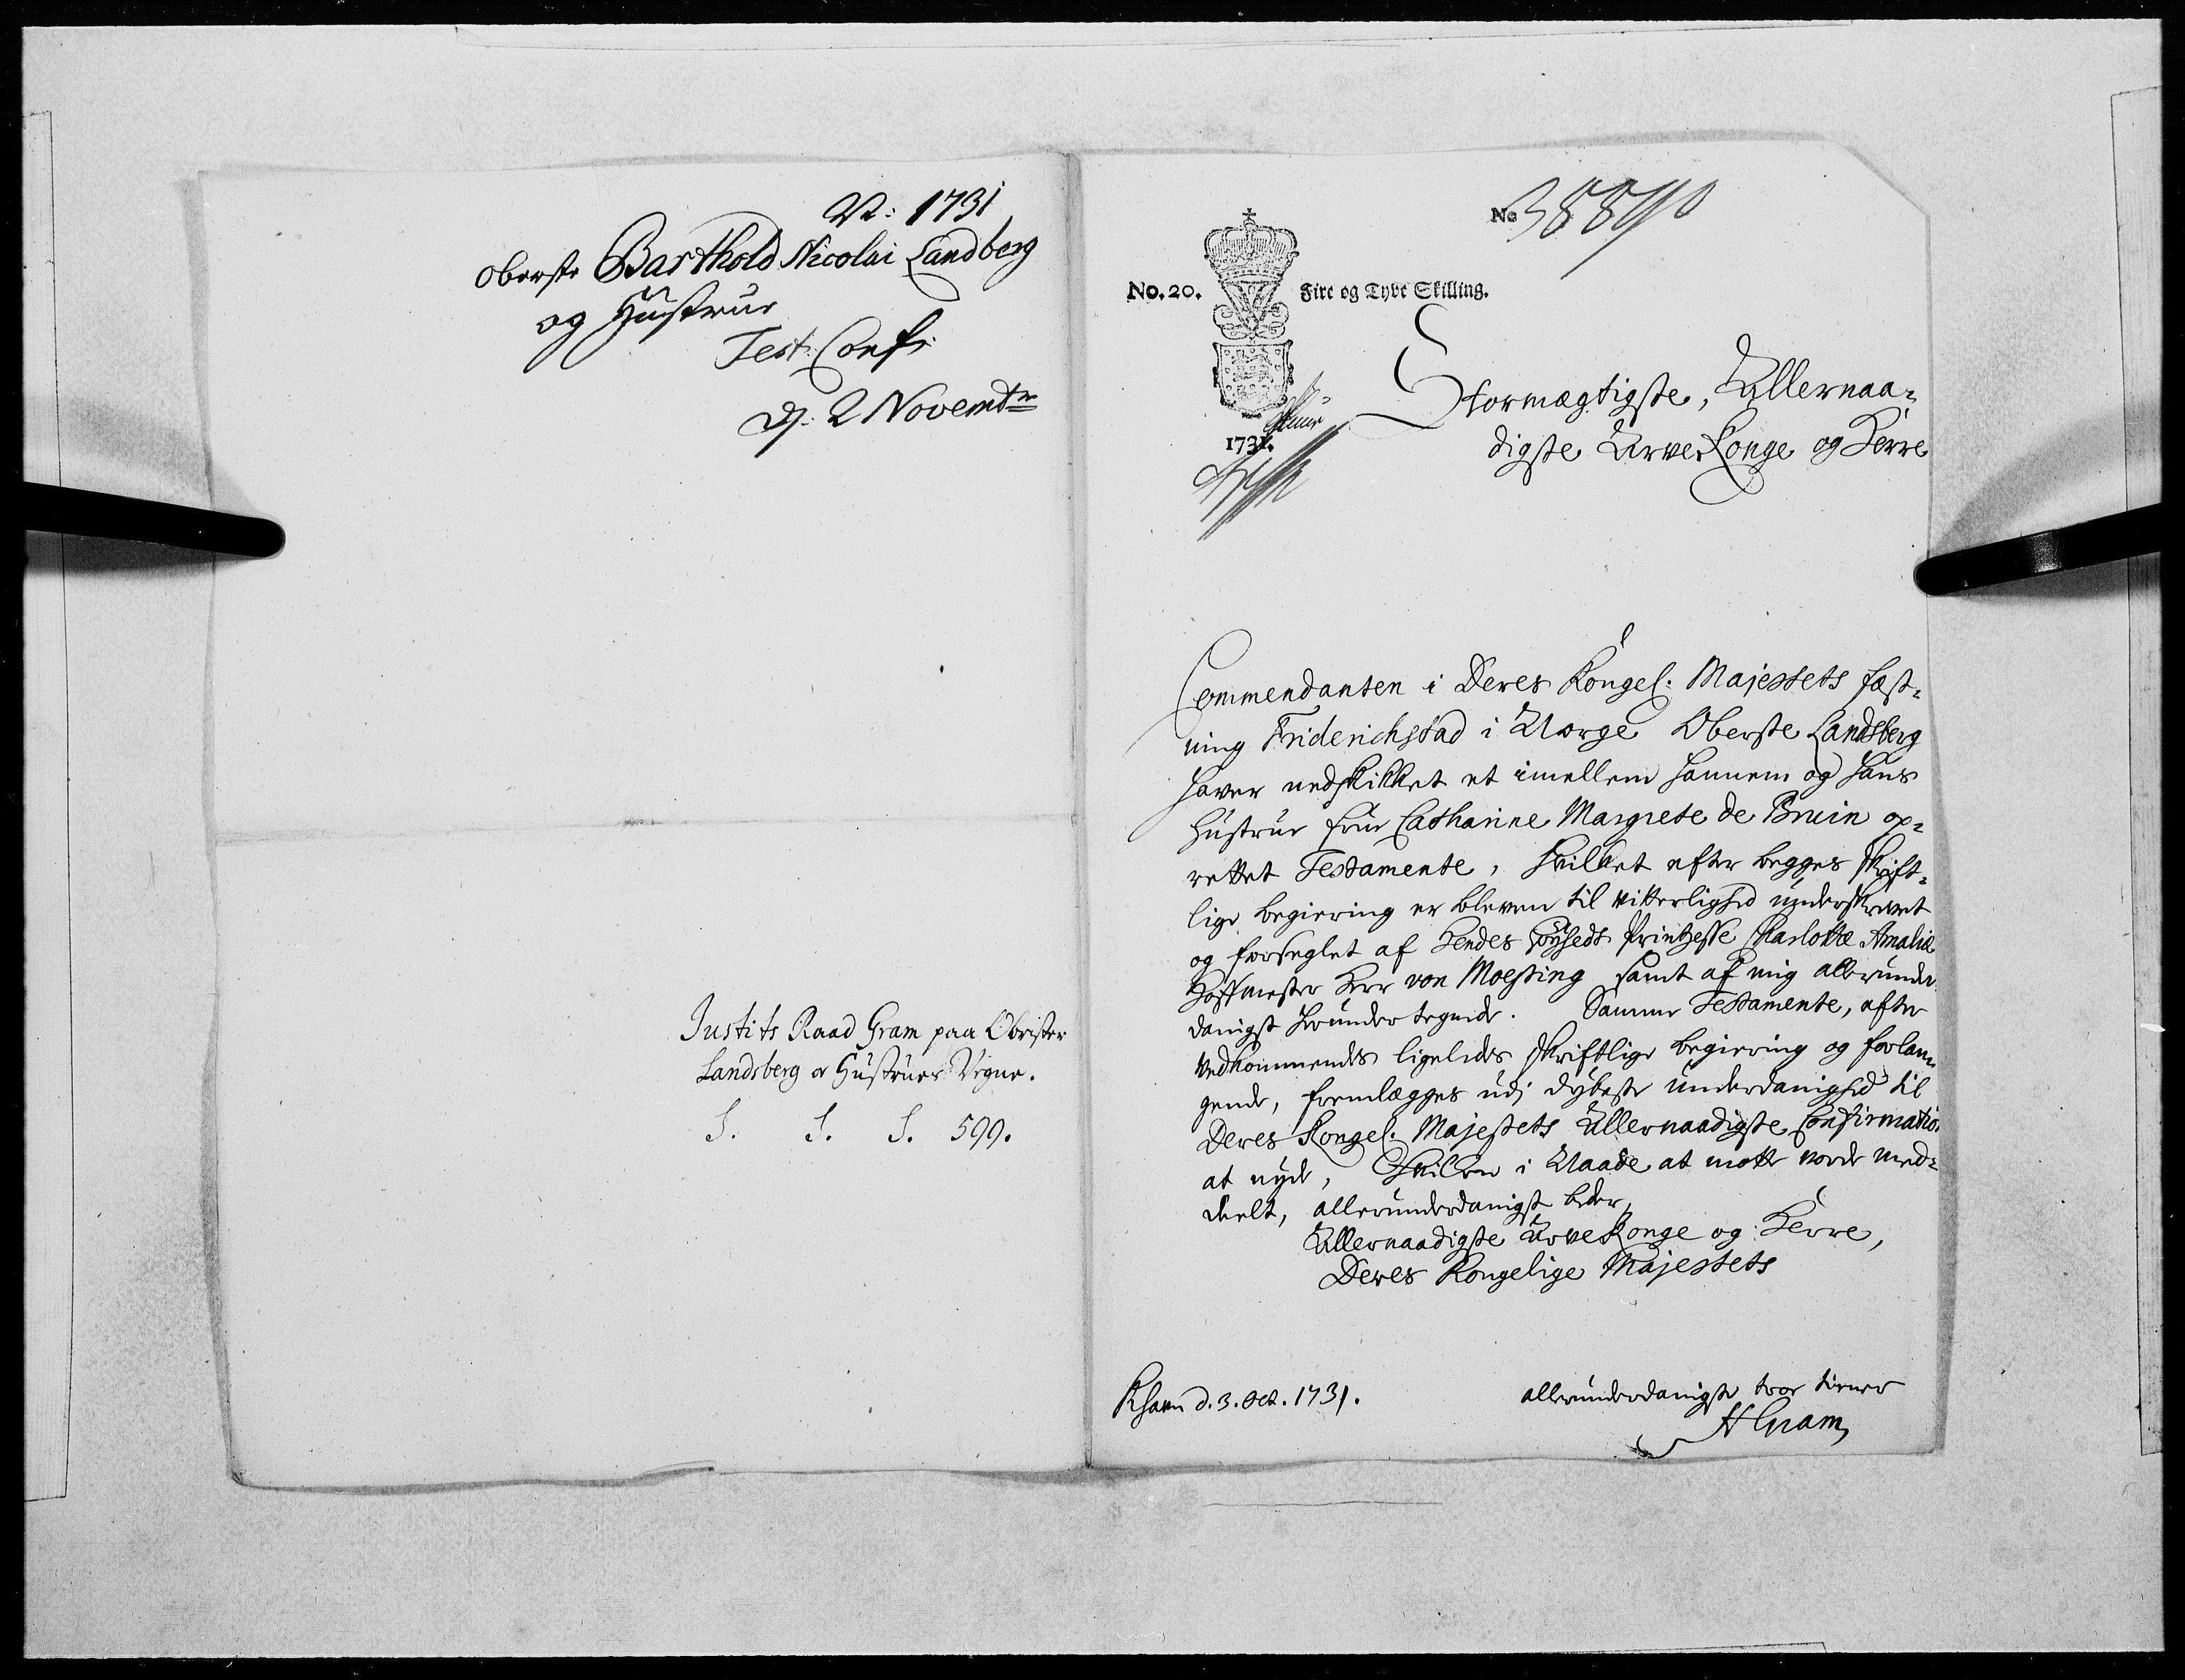 N: 1731
Oberste Barthold Nicolai Landberg
og Hustrue
Test: Confi:
d. 2 Novembr
Justits Raad Gram paa Obrister
Landsberg og Hustrues Vegne.
S. S. S. 599.
No 38840
No. 20. Fire og Tyve Skilling.
1731.
Stormægtigste, Allernaa-
digste Arve Konge og Herre
Commendanten i Deres Kongel: Majestets Fæst-
ning Friderichstad i Norge Oberste Landsberg
haver nedskikket et imellem hannem og hans
Hustrue Frue Catharine Margrete de Bruin op-
rettet Testamente, hvilket efter begges skrift-
lige begiering er bleven til vitterlighed underskrevet
og forseglet af Hendes Høyhedt Printzesse Charlottæ Amaliæ
Hoffmester Herr von Moesting samt af mig allerunder-
danigst herunder tegnede. Samme Testamente, efter
vedkommendes ligeledes skriftlige begiering og forlan-
gende, fremlægges udj dybeste underdanighed til
Deres Kongel: Majestets Allernaadigste Confirmation
at nyde, Hvilken i Naade at motte vorde med-
deelt, allerunderdanigst beder,
Allernaadigste Arve Konge og Herre,
Deres Kongelige Majestets
Khavn d. 3. Oct. 1731.
allerunderdanigste troe tiener
H Gram